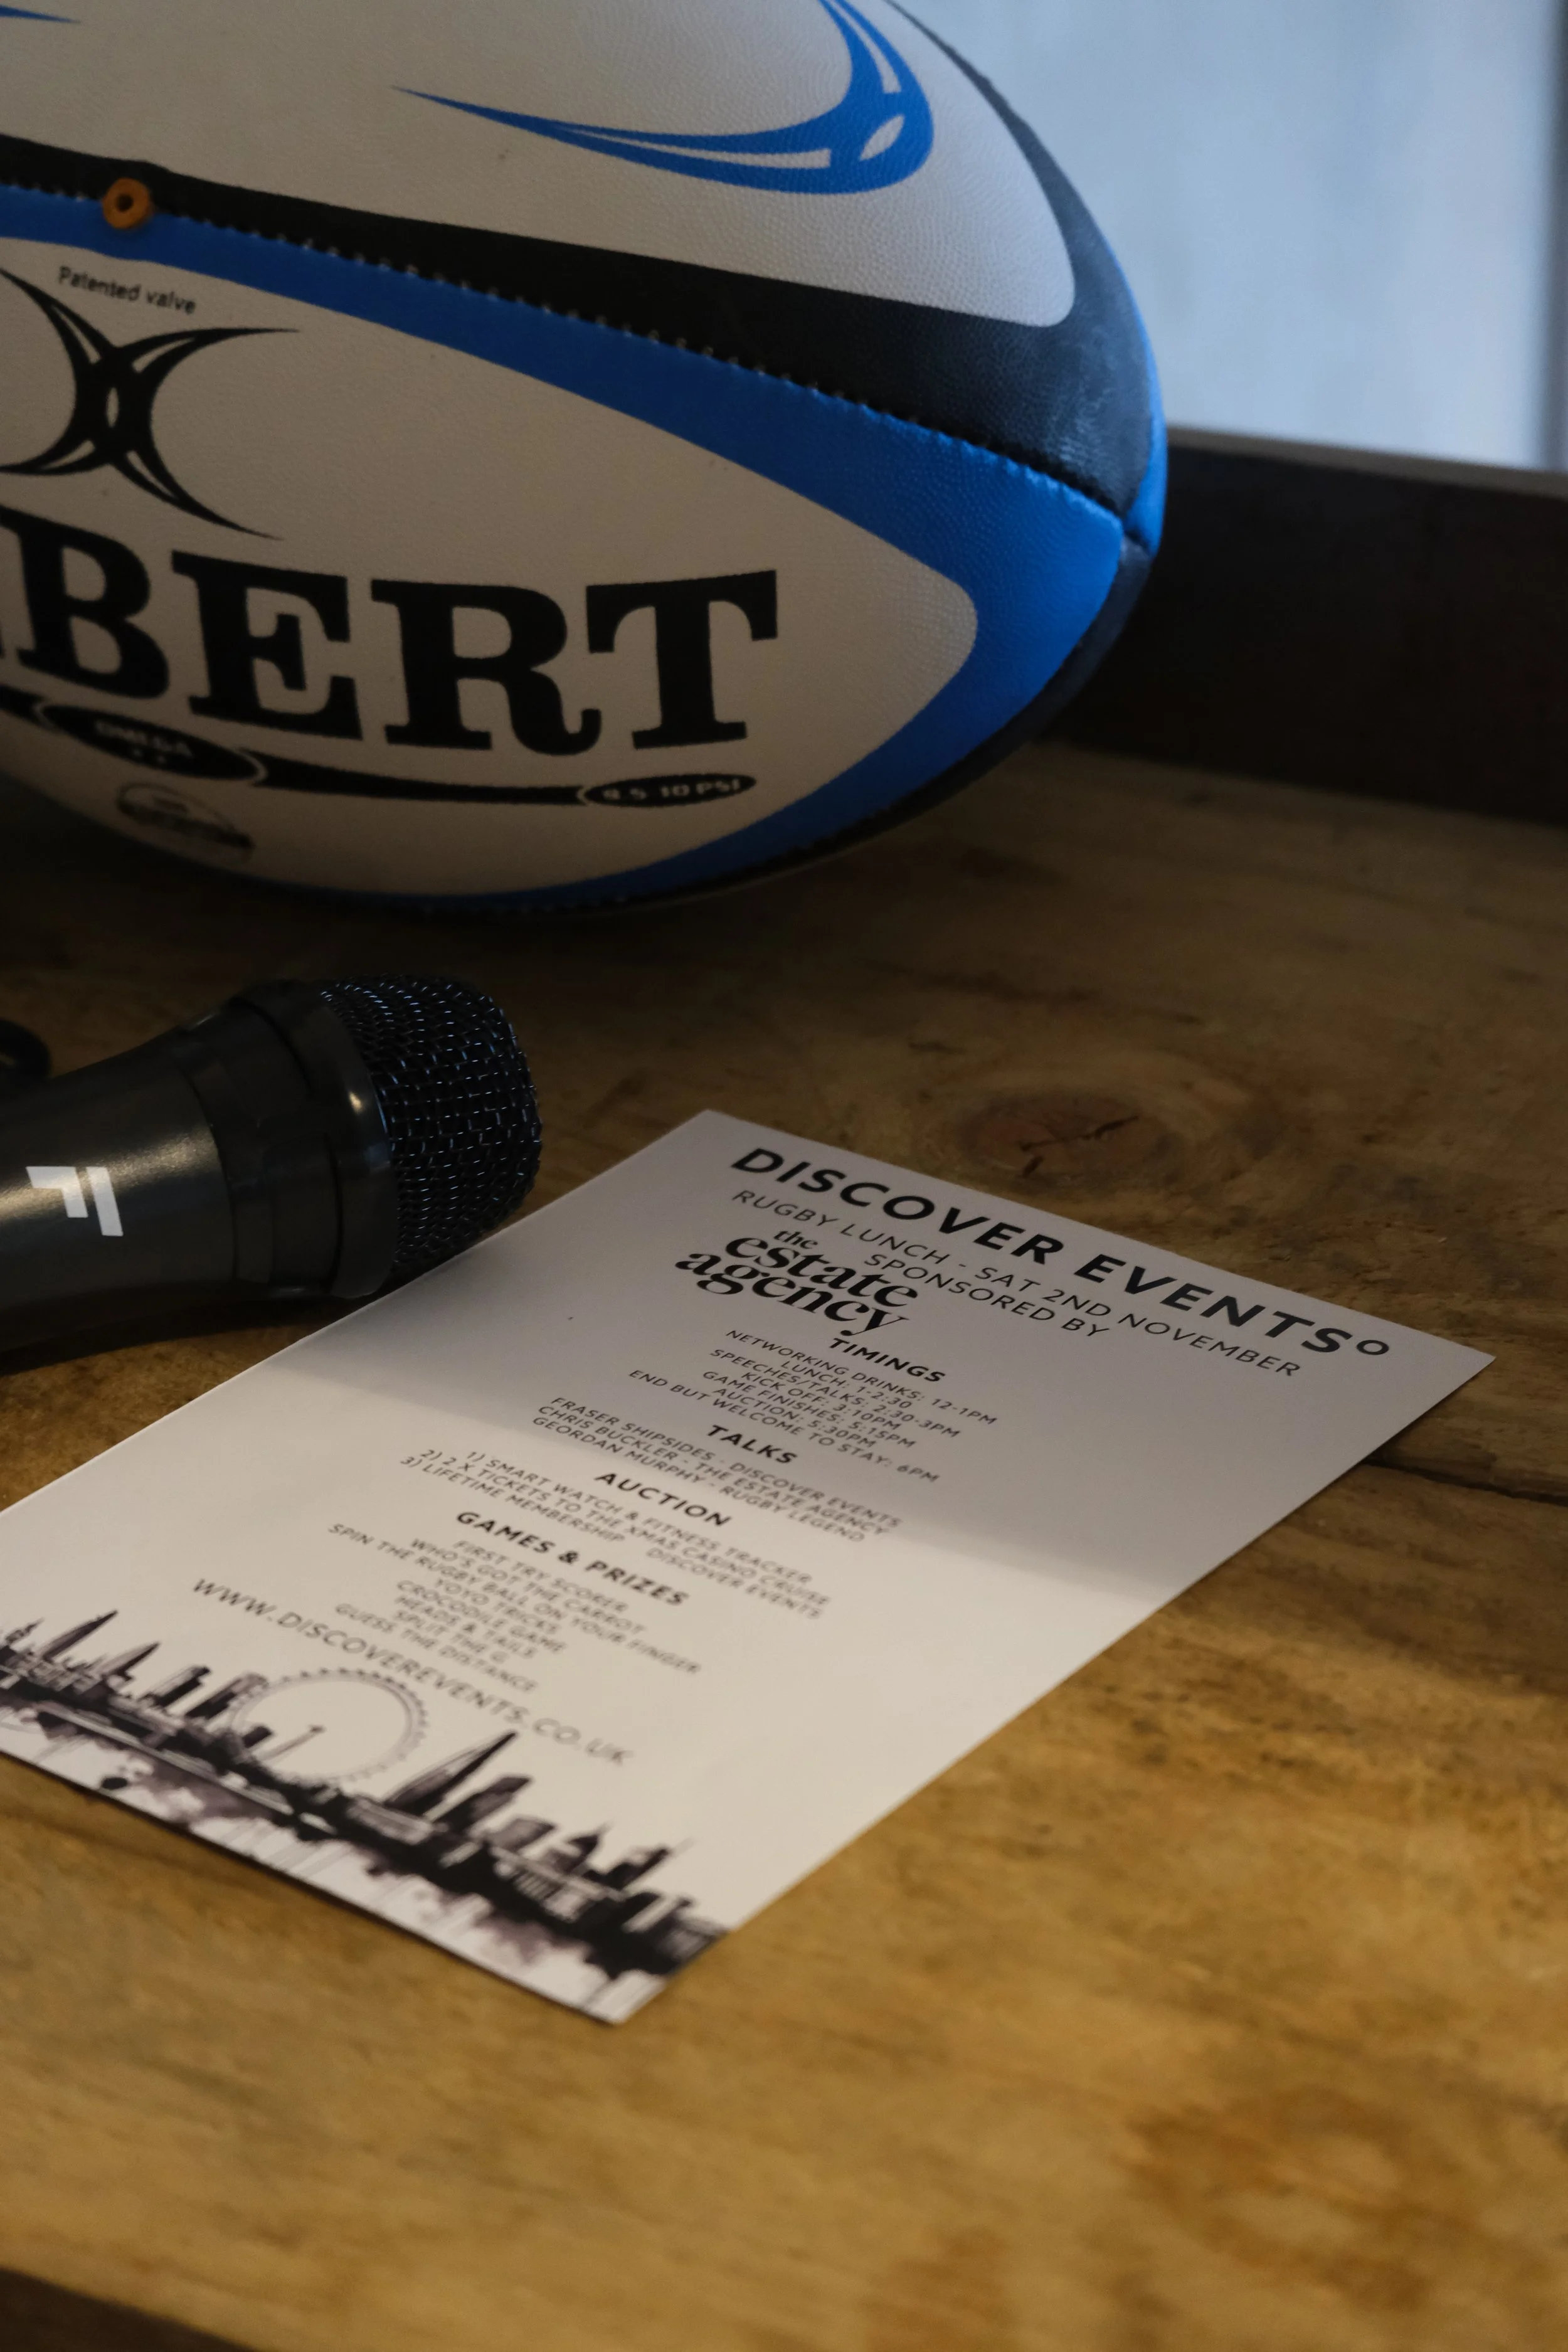 Patented valve
BERT
OMEGA
9.5-10 PSI
DISCOVER EVENTS°
RUGBY LUNCH - SAT 2ND NOVEMBER
SPONSORED BY
the
estate
agency
TIMINGS
NETWORKING DRINKS: 12-1PM
LUNCH: 1-2:30
SPEECHES/TALKS: 2:30-3PM
KICK OFF: 3:10PM
GAME FINISHES: 5:15PM
AUCTION: 5:30PM
END BUT WELCOME TO STAY: 6PM
TALKS
FRASER SHIPSIDES - DISCOVER EVENTS
CHRIS BUCKLER - THE ESTATE AGENCY
GEORDAN MURPHY - RUGBY LEGEND
AUCTION
1) SMART WATCH & FITNESS TRACKER
2) 2 X TICKETS TO THE XMAS CASINO CRUISE
3) LIFETIME MEMBERSHIP DISCOVER EVENTS
GAMES & PRIZES
FIRST TRY SCORER
WHO'S GOT THE CARROT
SPIN THE RUGBY BALL ON YOUR FINGER
YOYO TRICKS
CROCODILE GAME
HEADS & TAILS
SPLIT THE G
GUESS THE DISTANCE
WWW.DISCOVEREVENTS.CO.UK